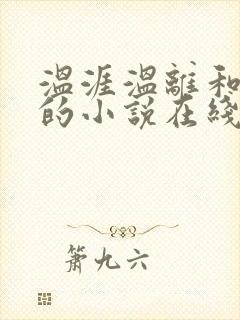 温涯温離和
的小説在綫
箫九六